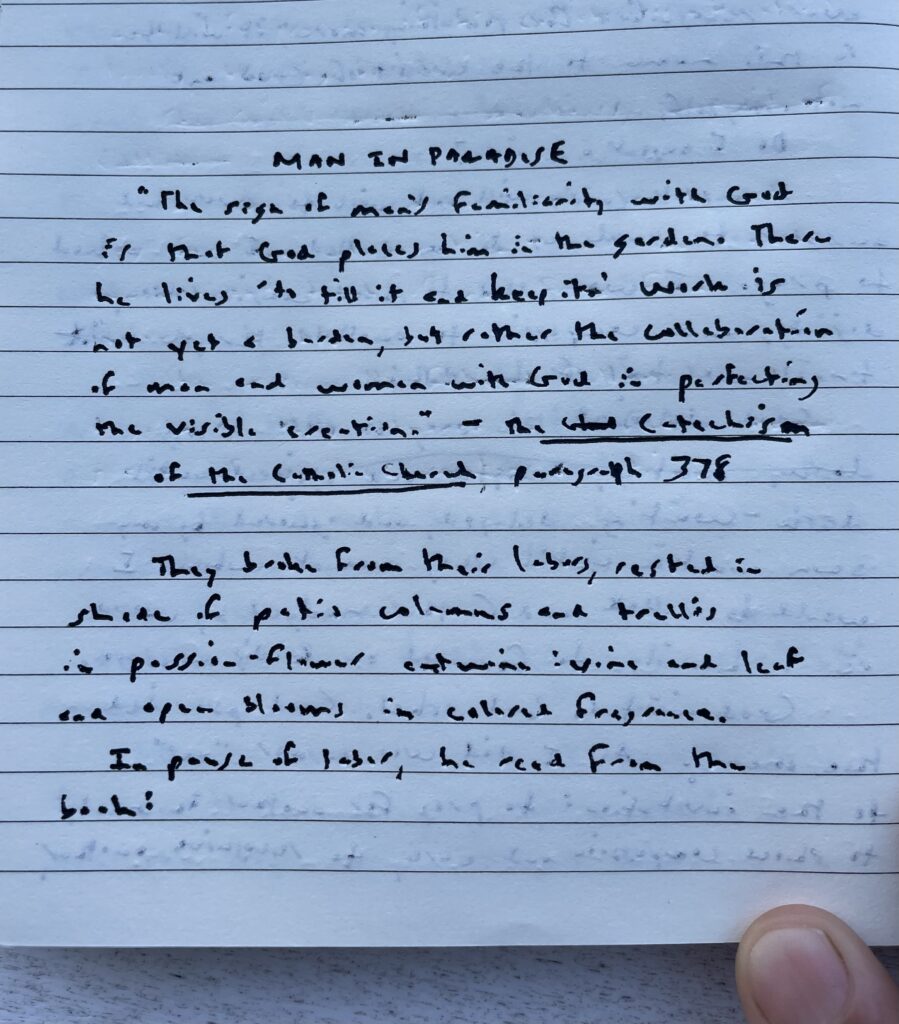 MAN IN PARADISE
"The sign of man's familiarity with God
is that God places him in the garden. There
he lives 'to till it and keep it.' Work is
not yet a burden, but rather the collaboration
of man and woman with God in perfecting
the visible creation." - The Catechism
of the Catholic Church, paragraph 378
They broke from their labors, rested in
shade of patio columns and trellis
in passion-flower entwine: vine and leaf
and open blooms in colored fragrance.
In pause of labor, he read from the
book: